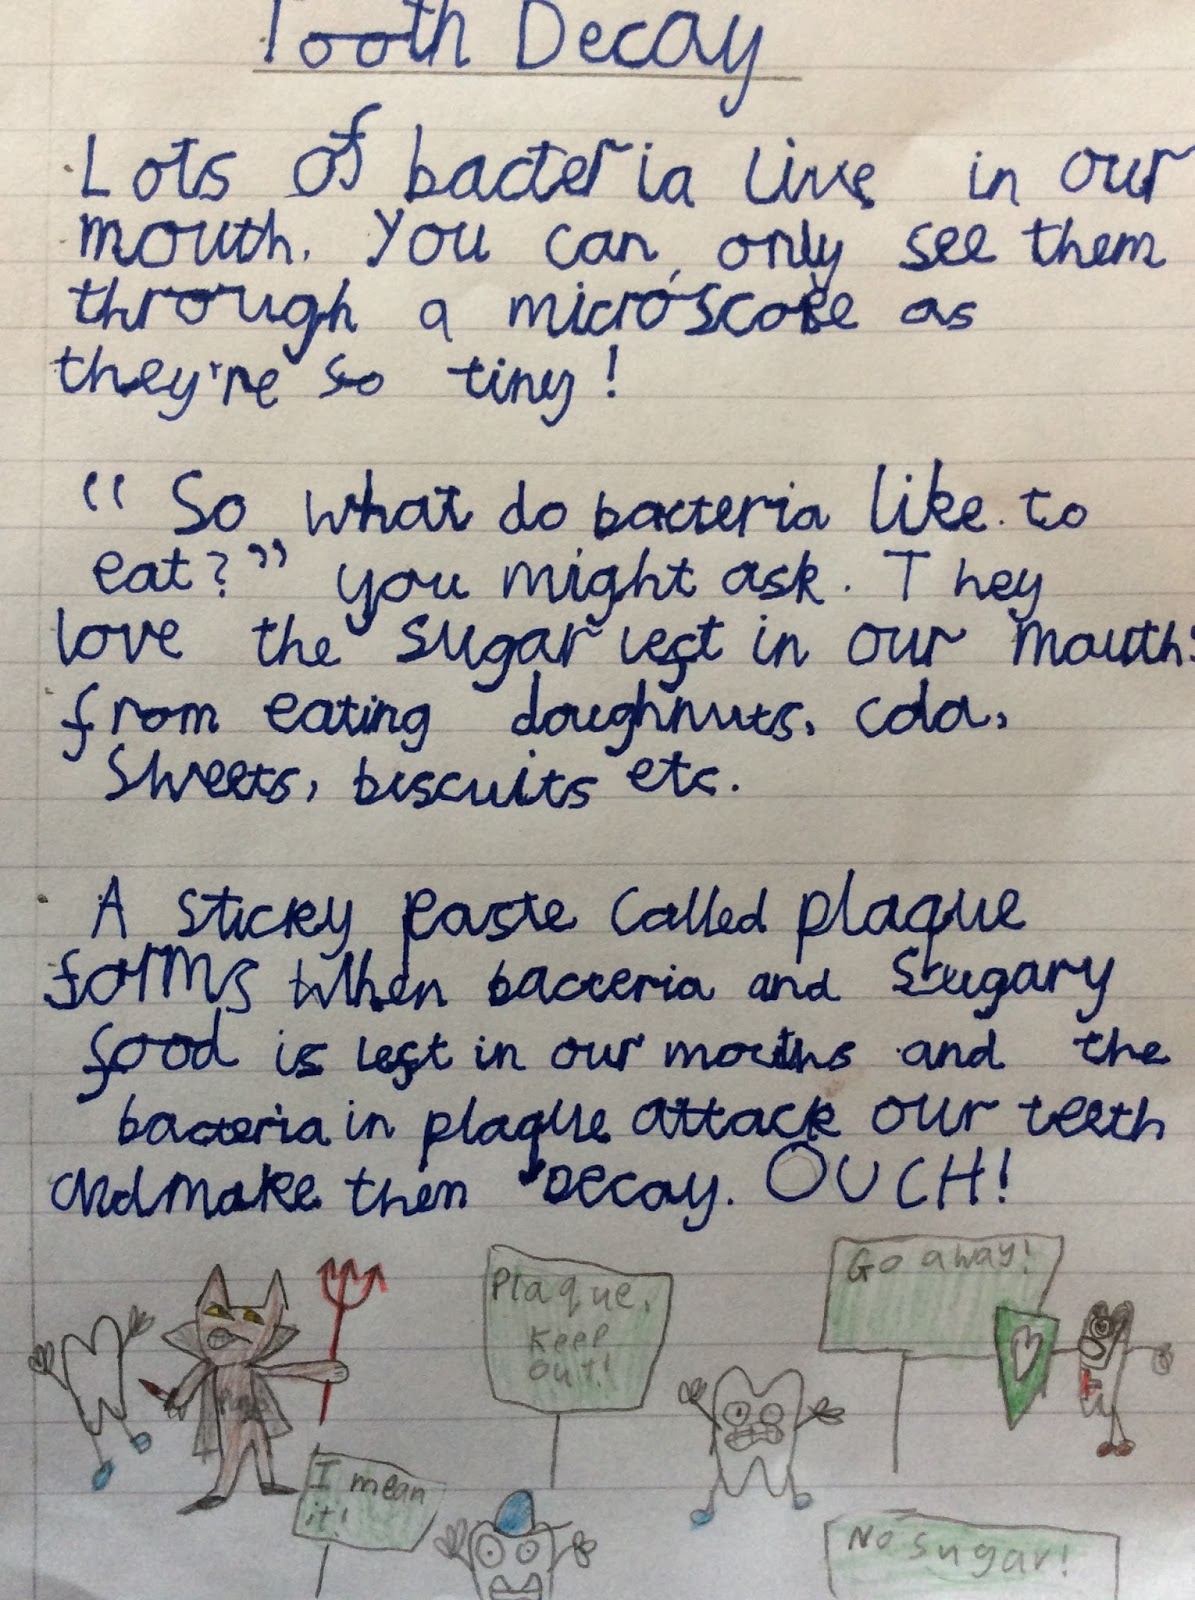 Tooth Decay
Lots of bacteria live in our
mouth. You can only see them
through a microscope as
they're so tiny!
“So what do bacteria like to
eat?” you might ask. They
love the sugar left in our mouths
from eating doughnuts, cola,
sweets, biscuits etc.
A sticky paste called plaque
forms when bacteria and sugary
food is left in our mouths and the
bacteria in plaque attack our teeth
and make them decay. OUCH!
Plaque,
keep
out!
Go away!
I mean
it!
No sugar!